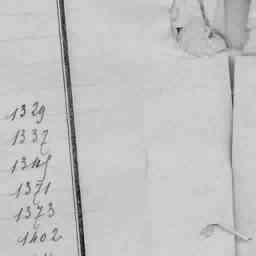 1329
1337
1345
1371
1373
1402